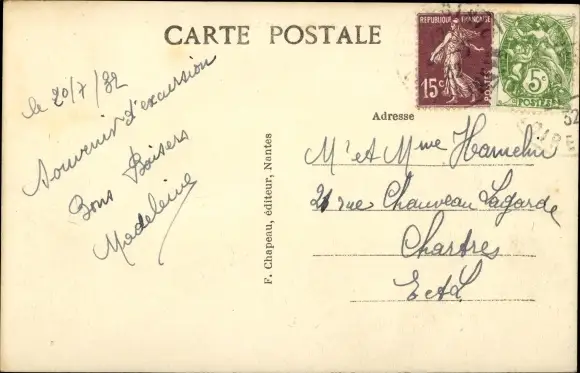 CARTE POSTALE
le 20/7/32
Souvenir d'excursion
Bons Baisers
Madeleine
F. Chapeau, éditeur, Nantes
REPUBLIQUE FRANÇAISE
15c
POSTES
5c
POSTES
32
Adresse
Mr et Mme Hamelin
21 rue Chauveau Lagarde
Chartres
E et L